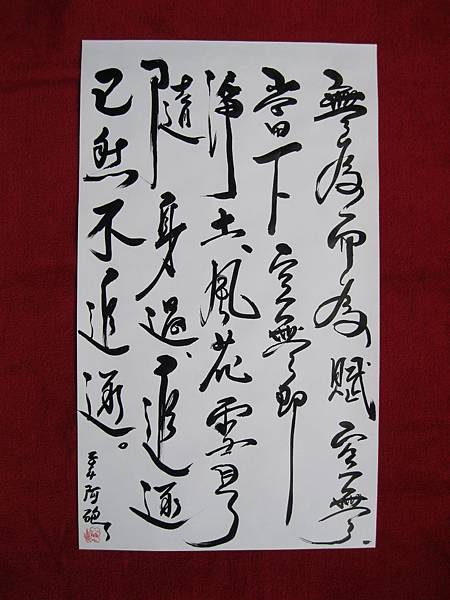 無為而為賦空無、
當下空無即
淨土、風花雪月
隨身過、追逐
已然不追逐。
阿硯